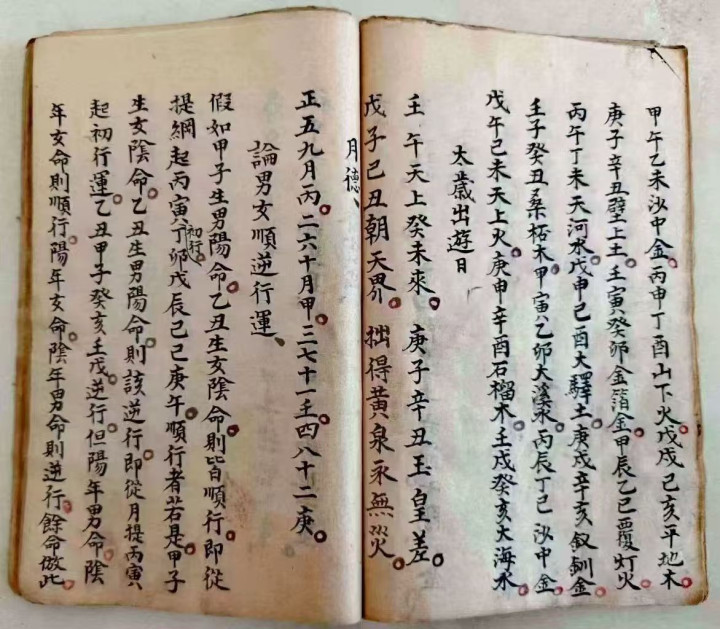 甲午乙未沙中金。丙申丁酉山下火。戊戌己亥平地木。
庚子辛丑壁上土。壬寅癸卯金箔金。甲辰乙巳覆灯火。
丙午丁未天河水。戊申己酉大驛土。庚戌辛亥釵釧金。
壬子癸丑桑柘木。甲寅乙卯大溪水。丙辰丁巳沙中金。
戊午己未天上火。庚申辛酉石榴木。壬戌癸亥大海水。
太歲出遊日
壬午天上癸未來。庚子辛丑玉皇差。
戊子己丑朝天界。拙得黃泉永無災。
月德、
正五九月丙。二六十月甲。三七十一壬。四八十二庚。
論男女順逆行運、
假如甲子生男陽命。乙丑生女陰命則皆自順行。即從
提綱起丙寅初行丁卯戊辰己巳庚午。順行者若是。甲子
生女陰命。乙丑生男陽命。則該逆行。即從月提丙寅
起初行運。乙丑甲子癸亥壬戌。逆行。但陽年男命。陰
年女命則順行。陽年女命。陰年男命則逆行。餘命倣此。